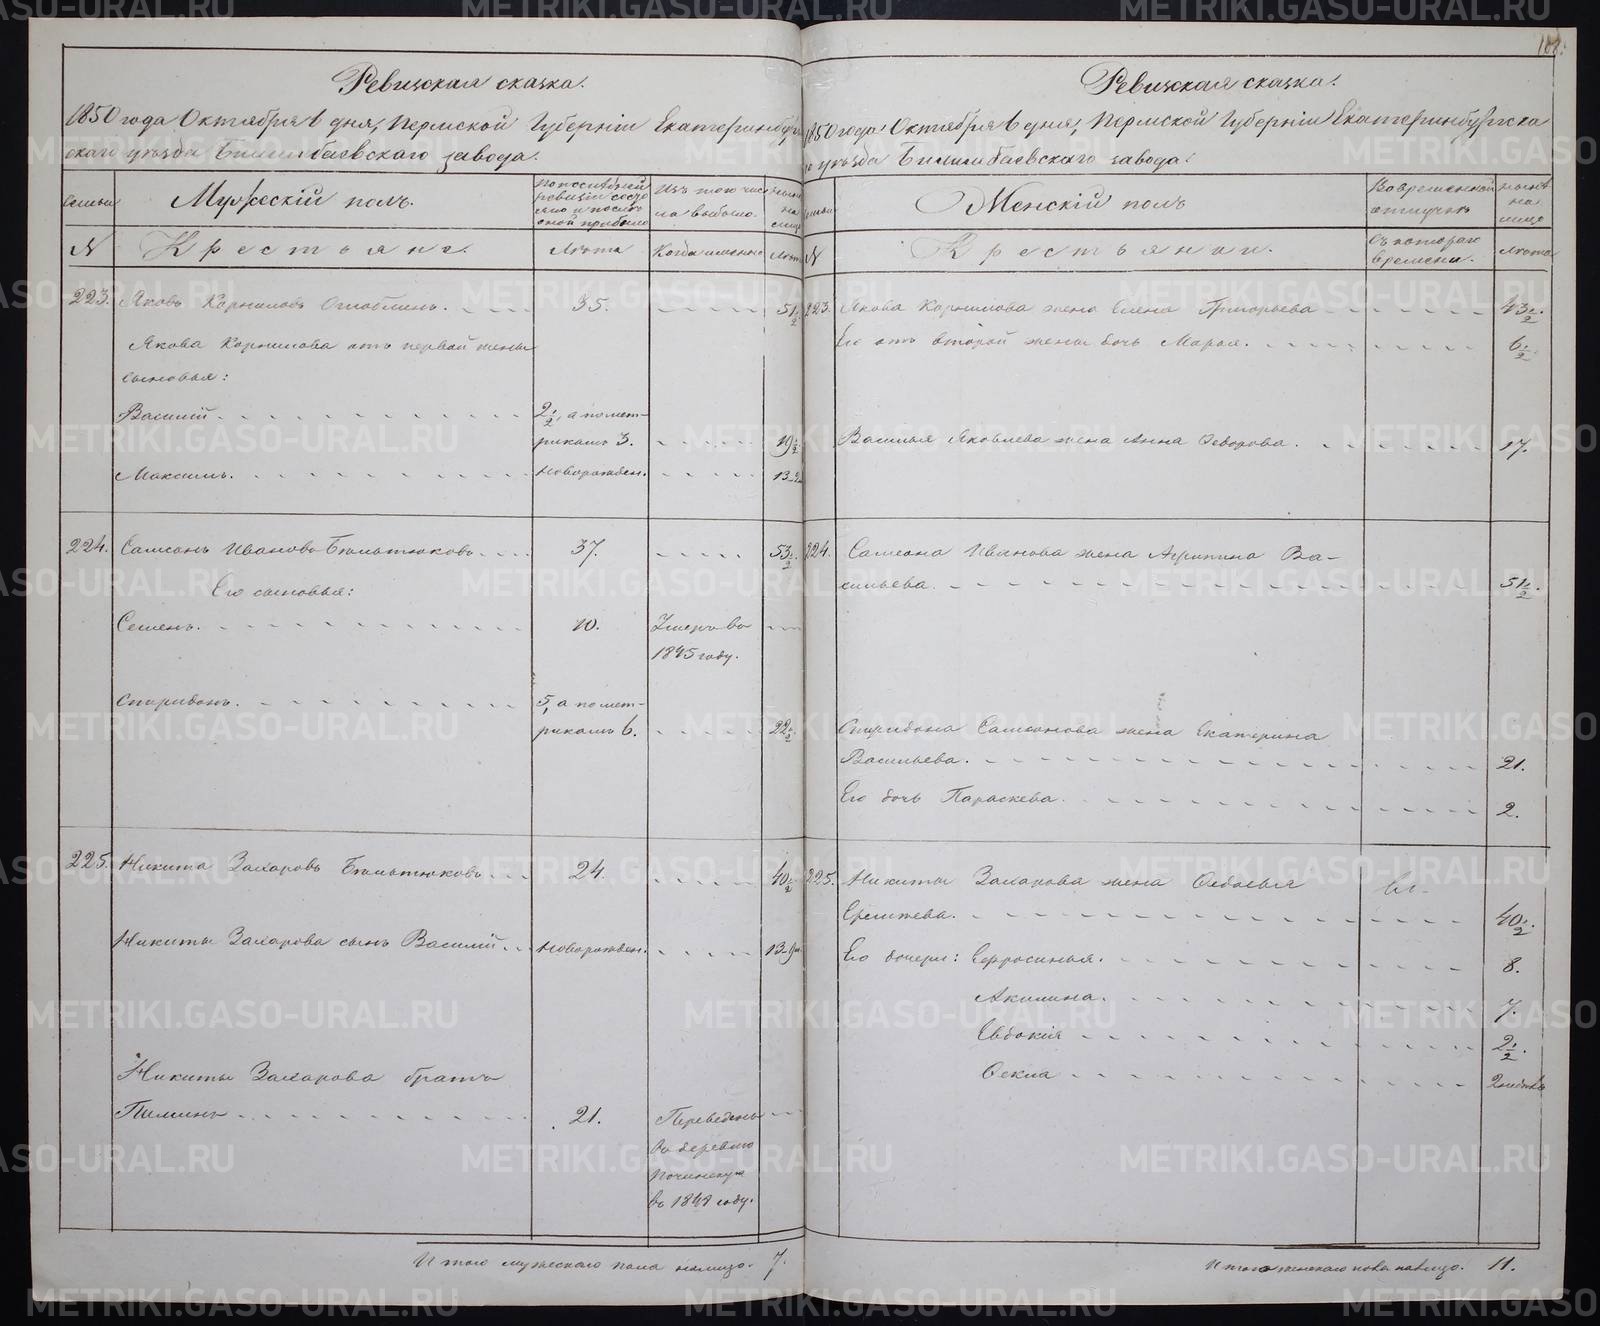 Ревизская сказка.
1850 года Октября 6 дня, Пермской Губерніи Екатеринбург-
скаго уѣзда Билимбаевскаго завода.
Семьи
Мужескій полъ.
По послѣдней ревизіи состояло и послѣ оной прибыло
Изъ того числа выбыло.
Нынѣ на лицо
N
Крестьяне.
Лѣта
Когда именно
Лѣта
223. Яковъ Корниловъ Оглоблинъ. 35. 51 1/2
Якова Корнилова отъ первой жены
сыновья:
Василій. 2 1/2, а по мет-
рикамъ 3. 19 1/2
Максимъ. новорожден. 13
224. Самсонъ Ивановъ Бѣлотюковъ 37. 53 1/2
Его сыновья:
Семенъ. 10. Умеръ въ
1845 году.
Спиридонъ. 5, а по мет-
рикамъ 6. 22 1/2
225. Никита Захаровъ 24. 40 1/2
Никиты Захарова сынъ Василій новорожден. 13
Никиты Захарова братъ
Пименъ 21. Переведенъ
въ деревню
въ 1848 году.
Итого мужескаго пола налицо. 7.
168.
Ревизская сказка.
1850 года Октября 6 дня, Пермской Губерніи Екатеринбургска-
го уѣзда Билимбаевскаго завода.
Семьи
Женскій полъ
Во временной отлучкѣ
Нынѣ на лицо
N
Крестьянки.
Съ котораго времени.
Лѣта
223. Якова Корнилова жена Елена Григорьева 43 1/2.
Его отъ второй жены дочь Марья. 6 1/2
Василья Яковлева жена Анна Ѳедорова. 17.
224. Самсона Иванова жена Агрипина Ва-
сильева. 51 1/2.
Спиридона Самсонова жена Екатерина
Васильева. 21.
Его дочь Параскева. 2.
225. Никиты Захарова жена Ѳедосья
Еремѣева. 40 1/2.
Его дочери: Ефросинья. 8.
Акилина. 7.
Евдокія 2 1/2.
Ѳекла 2 недѣль
Итого женскаго пола налицо. 11.
METRIKI.GASO-URAL.RU